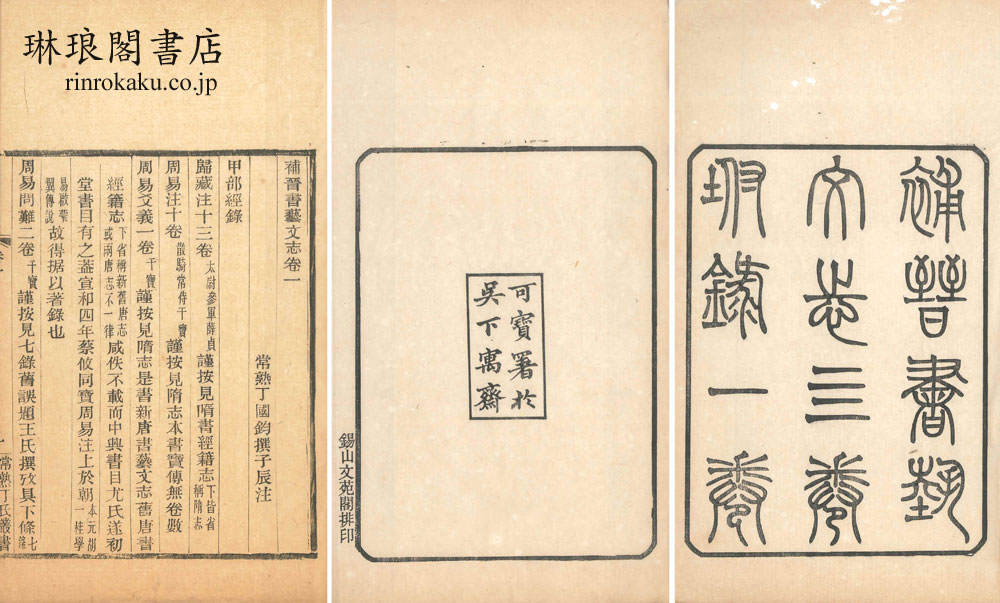 琳琅閣書店
rinrokaku.co.jp
補晉書藝
文志三卷
坿錄一卷
可寶署於
吳下寓齋
錫山文苑閣排印
補晉書藝文志卷一
常熟丁國鈞撰子辰注
甲部經錄
歸藏注十三卷 太尉參軍薛貞 謹按見隋書經籍志 下皆省稱隋志
周易注十卷 散騎常侍干寶 謹按見隋志本書寶傳無卷數
周易爻義一卷 干寶 謹按見隋志是書新唐書藝文志舊唐書
經籍志 下省稱新舊唐志或兩唐志不一律 咸佚不載而中興書目尤氏遂初
堂書目有之蓋宣和四年蔡攸同寶周易注上於朝 本元胡一桂學
易啟蒙翼傳說 故得据以著錄也
周易問難二卷 干寶 謹按見七錄舊誤題王氏撰攷具下條 七錄
卷一
一
常熟丁氏叢書